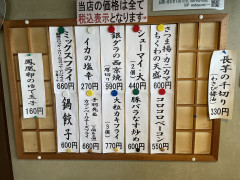 当店の価格は全て
税込表示となります。
さつま揚・カニカマ
ちくわの天盛
600円
コロコロベーコン
550円
シューマイ
440円
豚バラなす炒め
660円
銀ダラの西京焼
990円
大粒カキフライ
770円
イカの塩辛
270円
660円
ミックスフライ
660円
鍋餃子
660円
鳳凰卵のゆで玉子
160円
長芋の千切り
330円